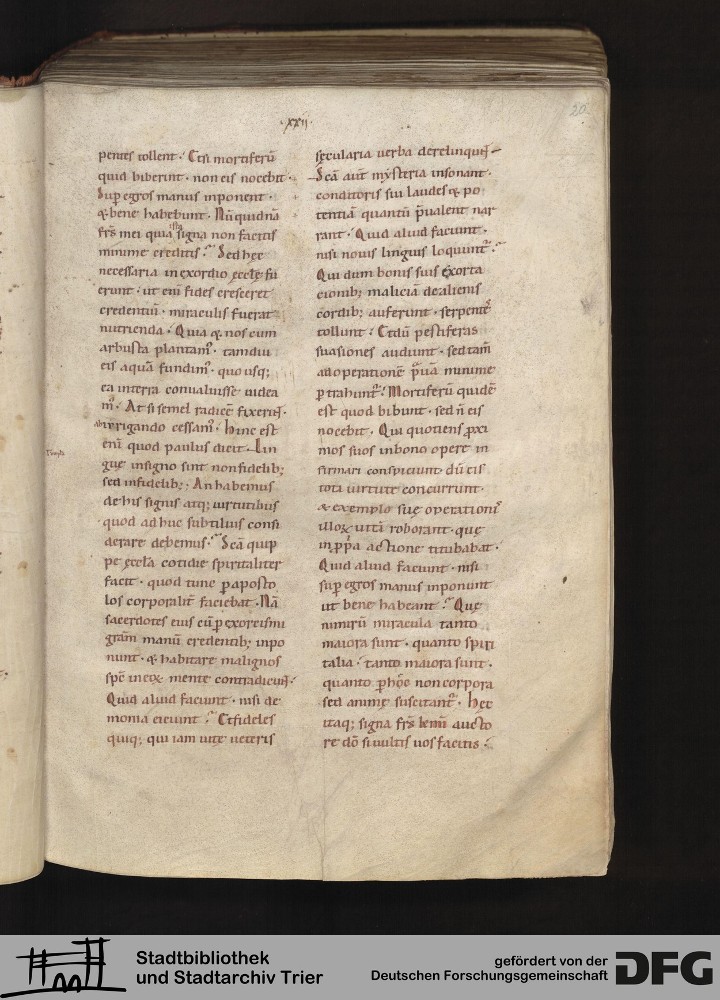 ·xxii·
20
pentes tollent· Et si mortiferū
quid biberint· non eis nocebit·
Sup egros manus inponent·
& bene habebunt· Nū quid nā
frs̄ mei quia ista signa non facitis
minime creditis? Sed hec
necessaria in exordio ęcclę fu
erunt· ut enī fides cresceret
credentiū· miraculis fuerat
nutrienda· Quia & nos cum
arbusta plantam᷒· tamdiu
eis aquā fundim᷒· quo usq;
ea in terra conualuisse uidea
m᷒· At si semel radicē fixerint·
ab irrigando cessam᷒· Hinc est
enī quod paulus dicit· Lin
guę in signo sunt non fidelib;
sed infidelib;· An habemus
de his signis atq; uirtutibus
quod adhuc subtilius consi
derare debemus? Scā quip
pe ęccla cotidie spiritaliter
facit· quod tunc p aposto
los corporalit̄ faciebat· Nā
sacerdotes eius cū p exorcismi
gratiam manū credentib; inpo
nunt· & habitare malignos
sp̄s in eoꝝ mente contradicunt·
Quid aliud faciunt· nisi de
monia eiciunt? Et fideles
quiq; qui iam uitę ueteris
sęcularia uerba derelinquunt
Scā aut̄ mysteria insonant·
conditoris sui laudes & po
tentiā quantū p̄ualent nar
rant· Quid aliud faciunt·
nisi nouis linguis loquunt᷑?
Qui dum bonis suis exorta
tionib; maliciā de alienis
cordib; auferunt· serpentes
tollunt· Et dū pestiferas
suasiones audiunt· sed tam̄
ad operationē prauā minime
ptrahunt᷑· Mortiferū quidē
est quod bibunt· sed n̄ eis
nocebit· Qui quotiens ꝓxi
mos suos in bono opere in
firmari conspiciunt dū eis
tota uirtute concurrunt·
& exemplo suę operationis
illoꝝ uitā roborant· quę
in ꝓpa actione titubabat·
Quid aliud faciunt· nisi
sup egros manus inponunt
ut bene habeant? Quę
nimirū miracula tanto
maiora sunt· quanto spiri
talia· tanto maiora sunt·
quanto p hęc non corpora
sed animę suscitant᷑· Hec
itaq; signa frs̄ kmi aucto
re dō si uultis uos facitis·
Stadtbibliothek
und Stadtarchiv Trier
gefördert von der
Deutschen Forschungsgemeinschaft
DFG